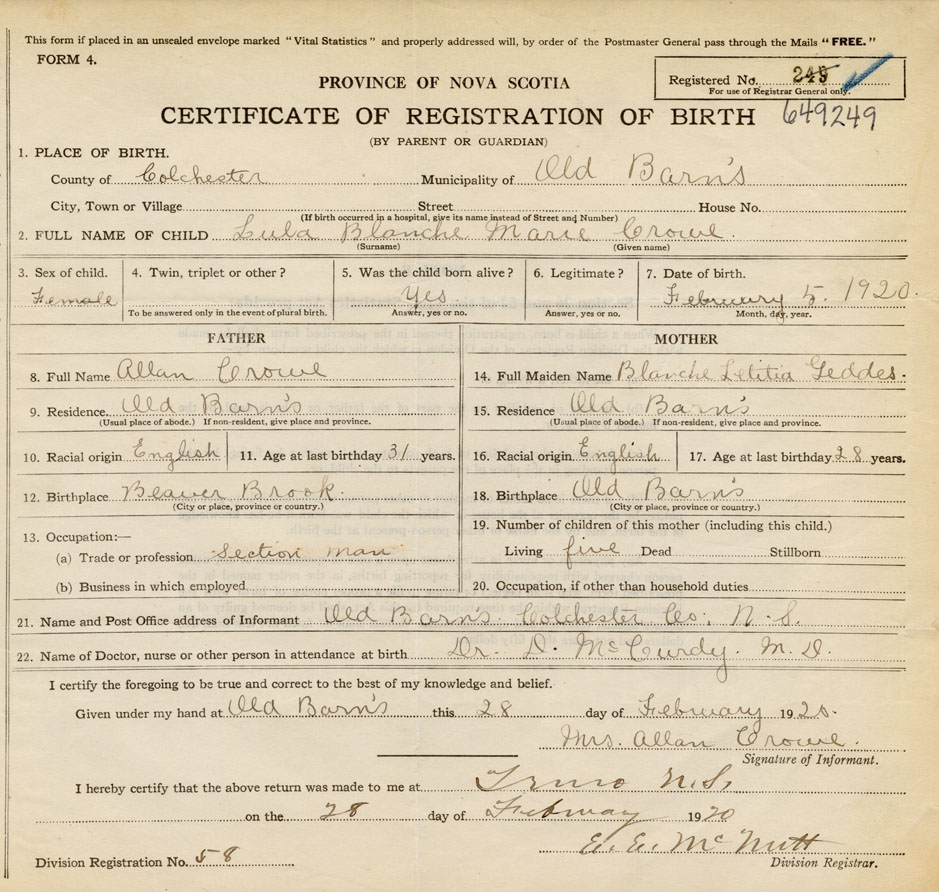 This form if placed in an unsealed envelope marked "Vital Statistics" and properly addressed will, by order of the Postmaster General pass through the Mails "FREE."
FORM 4.
PROVINCE OF NOVA SCOTIA
Registered No. 249
For use of Registrar General only.
CERTIFICATE OF REGISTRATION OF BIRTH 649249
(BY PARENT OR GUARDIAN)
1. PLACE OF BIRTH.
County of Colchester Municipality of Old Barn's
City, Town or Village Street House No.
(If birth occurred in a hospital, give its name instead of Street and Number)
2. FULL NAME OF CHILD Lula Blanche Marie Crowe.
(Surname) (Given name)
3. Sex of child. 4. Twin, triplet or other? 5. Was the child born alive? 6. Legitimate? 7. Date of birth.
Female Yes. February 5. 1920.
To be answered only in the event of plural birth. Answer, yes or no. Answer, yes or no. Month, day, year.
FATHER MOTHER
8. Full Name Allan Crowe 14. Full Maiden Name Blanche Letitia Geddes.
9. Residence. Old Barn's 15. Residence Old Barn's
(Usual place of abode.) If non-resident, give place and province. (Usual place of abode.) If non-resident, give place and province.
10. Racial origin English 11. Age at last birthday 31 years. 16. Racial origin. English 17. Age at last birthday 28 years.
12. Birthplace Beaver Brook. 18. Birthplace Old Barn's
(City or place, province or country.) (City or place, province or country.)
13. Occupation:— 19. Number of children of this mother (including this child.)
(a) Trade or profession Section man Living five Dead Stillborn
(b) Business in which employed 20. Occupation, if other than household duties
21. Name and Post Office address of Informant Old Barns. Colchester Co; N.S.
22. Name of Doctor, nurse or other person in attendance at birth Dr. D. McCurdy. M.D.
I certify the foregoing to be true and correct to the best of my knowledge and belief.
Given under my hand at Old Barn's this 28 day of February 1920.
Mrs. Allan Crowe.
Signature of Informant.
I hereby certify that the above return was made to me at Truro N.S.
on the 28 day of February 1920
E. E. McNutt
Division Registration No. 58 Division Registrar.